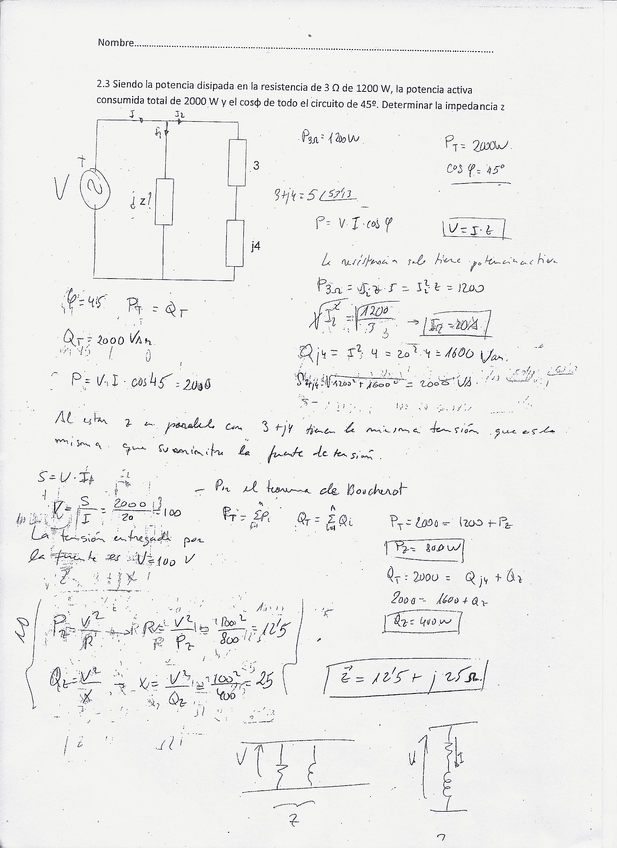 Nombre
2.3 Siendo la potencia disipada en la resistencia de 3 Ω de 1200 W, la potencia activa
consumida total de 2000 W y el cosϕ de todo el circuito de 45º. Determinar la impedancia z
I I2
I1
+
V
¿z?
3
j4
P3Ω = 1200W
PT = 2000W
cos φ = 45º
3+j4 = 5
P = V·I·cos φ
V = I·Z
La resistencia solo tiene potencia activa
= 1200
φ = 45 PT = QT
QT = 2000 VAr
P = V·I·cos45 = 2000
Qj4 = I²·4 = 20²·4 = 1600 Var.
Al estar z en paralelo con 3+j4 tienen la misma tensión que es la
misma que suministra la fuente de tensión.
S = V·I
= S/I = 2000/20 = 100
La tensión entregada por
la fuente es V=100 V
– Por el teorema de Boucherot
PT = ΣPi QT = ΣQi
PT = 2000 = 1200 + Pz
Pz = 800W
QT = 2000 = Qj4 + Qz
2000 = 1600 + Qz
Qz = 400W
NO
Pz = V²/R → R = V²/Pz = 100²/800 = 12'5
Qz = V²/X → X = V²/Qz = 100²/400 = 25
Z = 12'5 + j 25 Ω
V
Z
I
?